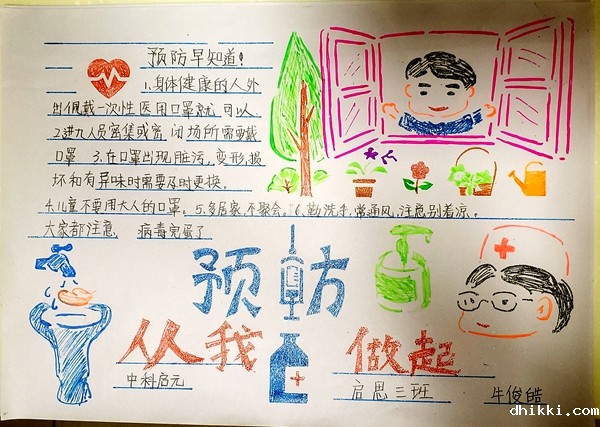 预防早知道!
1.身体健康的人外
出佩戴一次性医用口罩就可以
2.进入人员密集或密闭场所需要戴
口罩 3.在口罩出现脏污,变形,损
坏和有异味时需要及时更换。
4.儿童不要用大人的口罩。5.多居家,不聚会。6.勤洗手,常通风,注意别着凉。
大家都注意 病毒完蛋了
预防
从我 做起
中科启元 启思三班 牛俊皓
dhikki.com